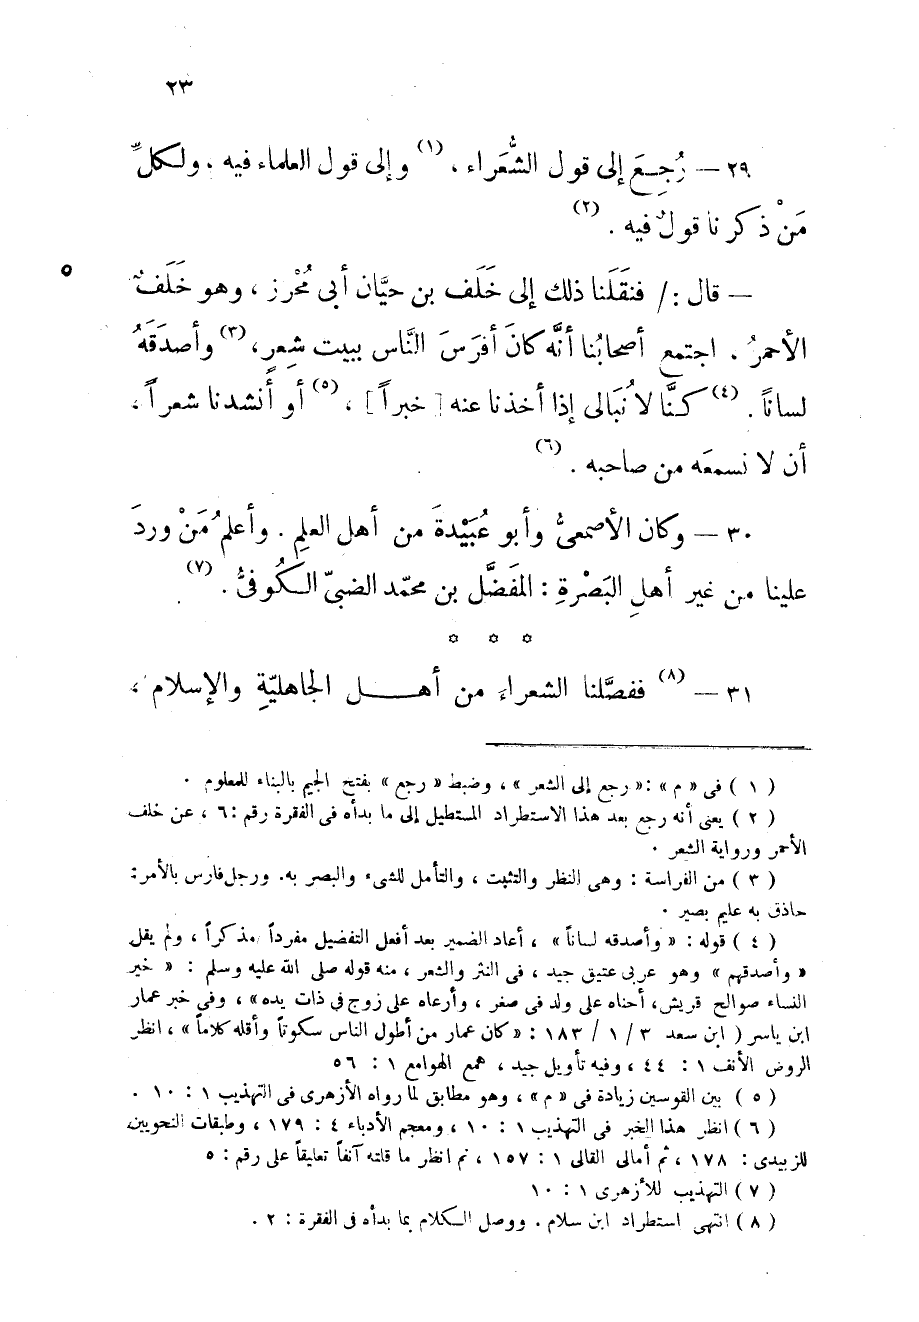 ٢٣
٢٩ — رُجِعَ إلى قول الشُّعَراء ، (١) وإلى قول العلماء فيه . ولكلٍّ
مَنْ ذكرنا قولٌ فيه . (٢)
٥
— قال : / فنقَلَنا ذلك إلى خَلَف بن حيَّان أبى مُحْرِز ، وهو خَلَفٌ
الأحمرُ . اجتمع أصحابُنا أنَّه كانَ أفرَسَ النَّاس ببيت شِعرٍ، (٣) وأصدَقَهُ
لساناً . (٤) كنَّا لا نُبَالى إذا أخذنا عنه [ خبراً ] ، (٥) أو أنشدنا شعراً ،
أن لا نسمعَه من صاحبه . (٦)
٣٠ — وكان الأصمعىُّ وأبو عُبَيْدةَ من أهل العلمِ . وأعلمُ مَنْ وردَ
علينا من غير أهلِ البَصْرةِ : المفَضَّل بن محمّد الضبىّ الكُوفىُّ . (٧)
☼ ☼ ☼
٣١ — (٨) ففصَّلنا الشعراء من أهل الجاهليّةِ والإسلام ،
( ١ ) فى « م » : « رجع إلى الشعر » ، وضبط « رجع » بفتح الجيم بالبناء للمعلوم .
( ٢ ) يعنى أنه رجع بعد هذا الاستطراد المستطيل إلى ما بدأه فى الفقرة رقم : ٦ ، عن خلف
الأحمر ورواية الشعر .
( ٣ ) من الفراسة : وهى النظر والتثبت ، والتأمل للشىء والبصر به . ورجل فارس بالأمر :
حاذق به عليم بصير .
( ٤ ) قوله : « وأصدقه لساناً » ، أعاد الضمير بعد أفعل التفضيل مفرداً مذكراً ، ولم يقل
« وأصدقهم » وهو عربى عتيق جيد ، فى النثر والشعر ، منه قوله صلى الله عليه وسلم : « خير
النساء صوالح قريش، أحناه على ولد فى صغر ، وأرعاه على زوج فى ذات يده » ، وفى خبر عمار
ابن ياسر ( ابن سعد ٣ / ١ / ١٨٣ : « كان عمار من أطول الناس سكوتاً وأقله كلاماً » ، انظر
الروض الأنف ١ : ٤٤ ، وفيه تأويل جيد ، همع الهوامع ١ : ٥٦
( ٥ ) بين القوسين زيادة فى « م » ، وهو مطابق لما رواه الأزهرى فى التهذيب ١ : ١٠ .
( ٦ ) انظر هذا الخبر فى التهذيب ١ : ١٠ ، ومعجم الأدباء ٤ : ١٧٩ ، وطبقات النحويين
للزبيدى : ١٧٨ ، ثم أمالى القالى ١ : ١٥٧ ، ثم انظر ما قلته آنفاً تعليقاً على رقم : ٥
( ٧ ) التهذيب للأزهرى ١ : ١٠
( ٨ ) انتهى استطراد ابن سلام . ووصل الكلام بما بدأه فى الفقرة : ٢ .